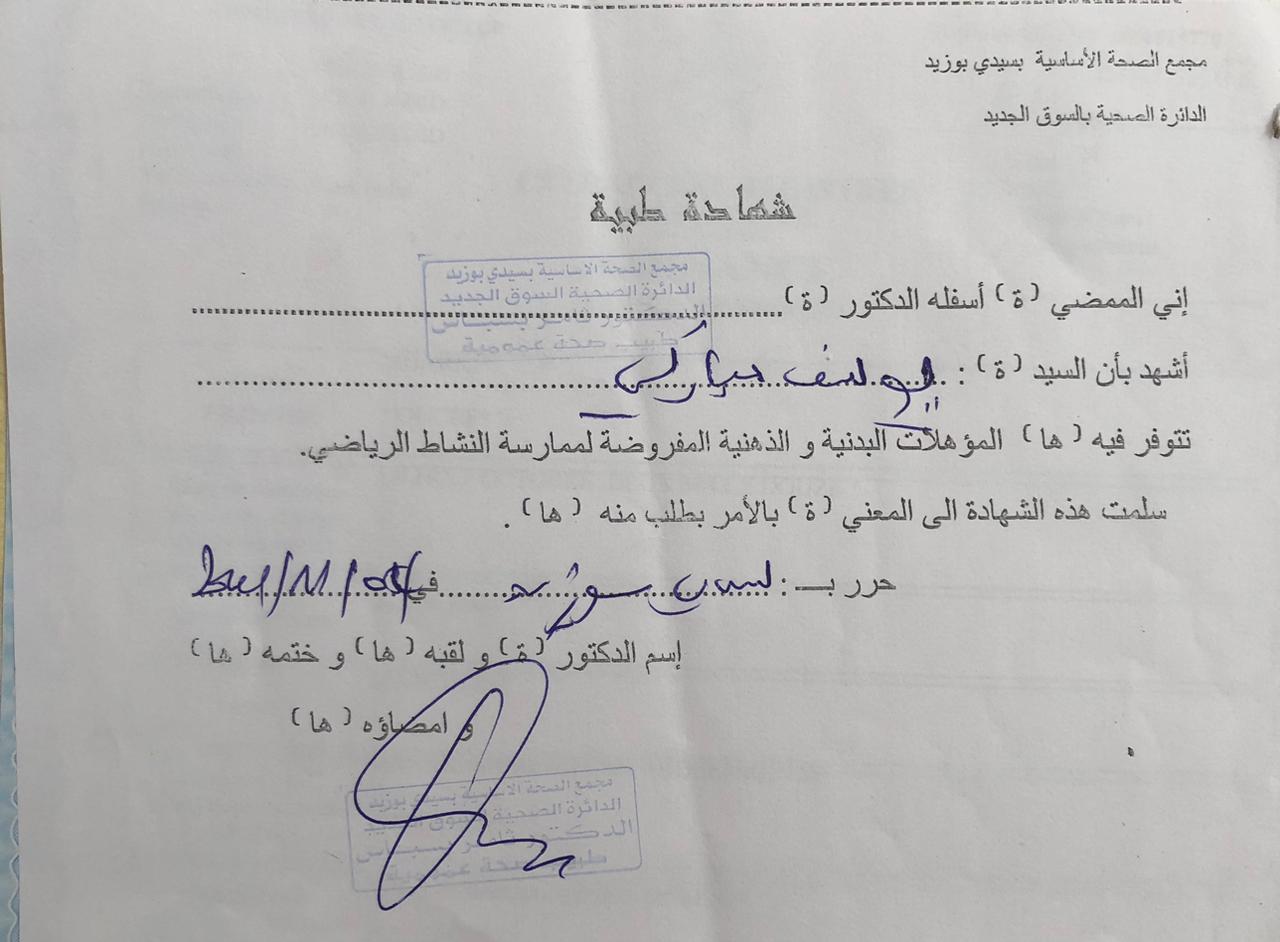 مجمع الصحة الأساسية بسيدي بوزيد
الدائرة الصحية بالسوق الجديد
شهادة طبية
مجمع الصحة الاساسية بسيدي بوزيد
الدائرة الصحية السوق الجديد
الدكتور ثامر بسباس
طبيب صحة عمومية
إني الممضي (ة) أسفله الدكتور (ة)
أشهد بأن السيد (ة) : يوسف مبارك
تتوفر فيه (ها) المؤهلات البدنية و الذهنية المفروضة لممارسة النشاط الرياضي.
سلمت هذه الشهادة الى المعني (ة) بالأمر بطلب منه (ها) .
حرر بـ : سيدي بوزيد في
إسم الدكتور (ة) و لقبه (ها) و ختمه (ها)
و امضاؤه (ها)
مجمع الصحة الاساسية بسيدي بوزيد
الدائرة الصحية السوق الجديد
الدكتور ثامر بسباس
طبيب صحة عمومية